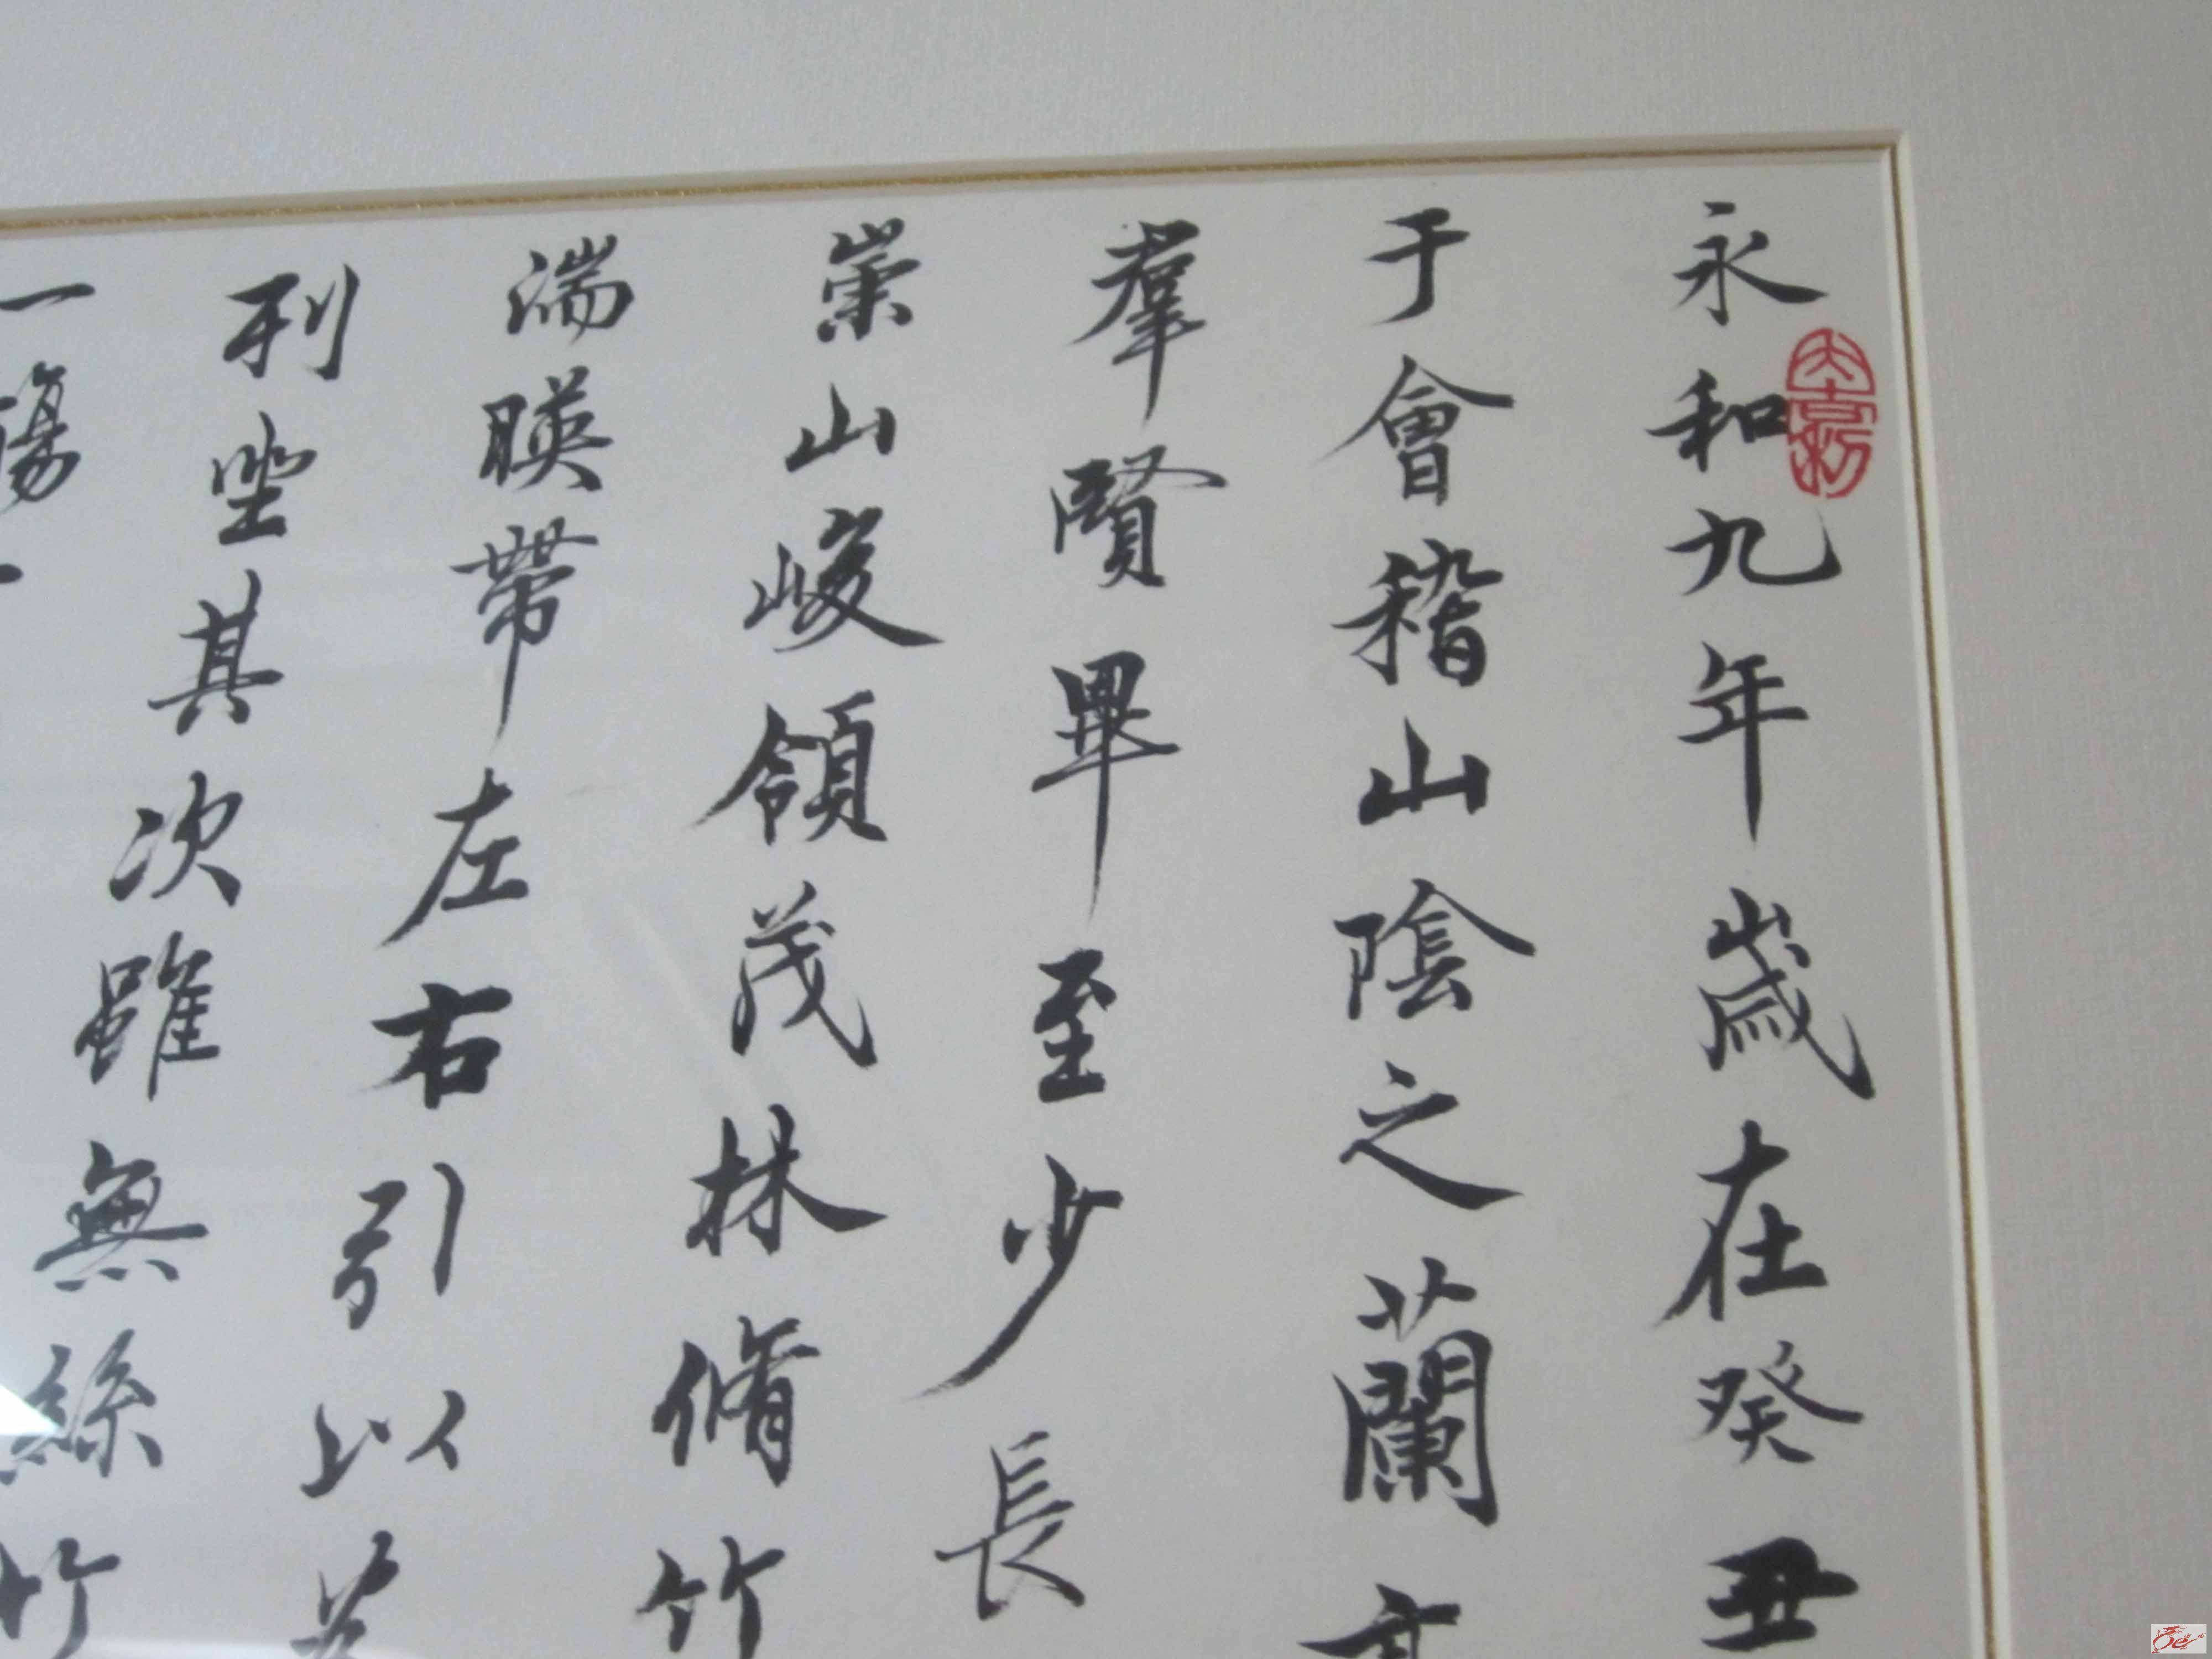 永和九年歲在癸丑
于會稽山陰之蘭亭
羣賢畢至少長
崇山峻領茂林脩竹
湍暎帶左右引以為
列坐其次雖無絲竹
一觴一